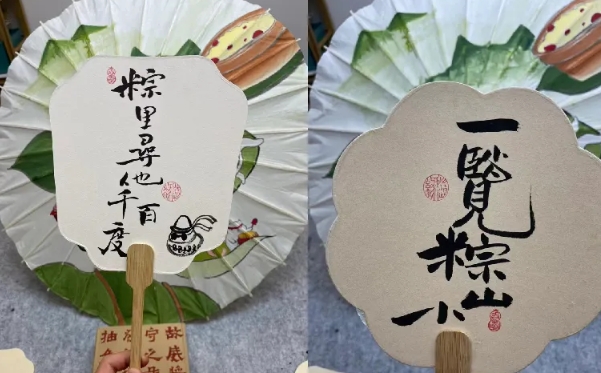 粽里尋他千百度
一覽粽山小